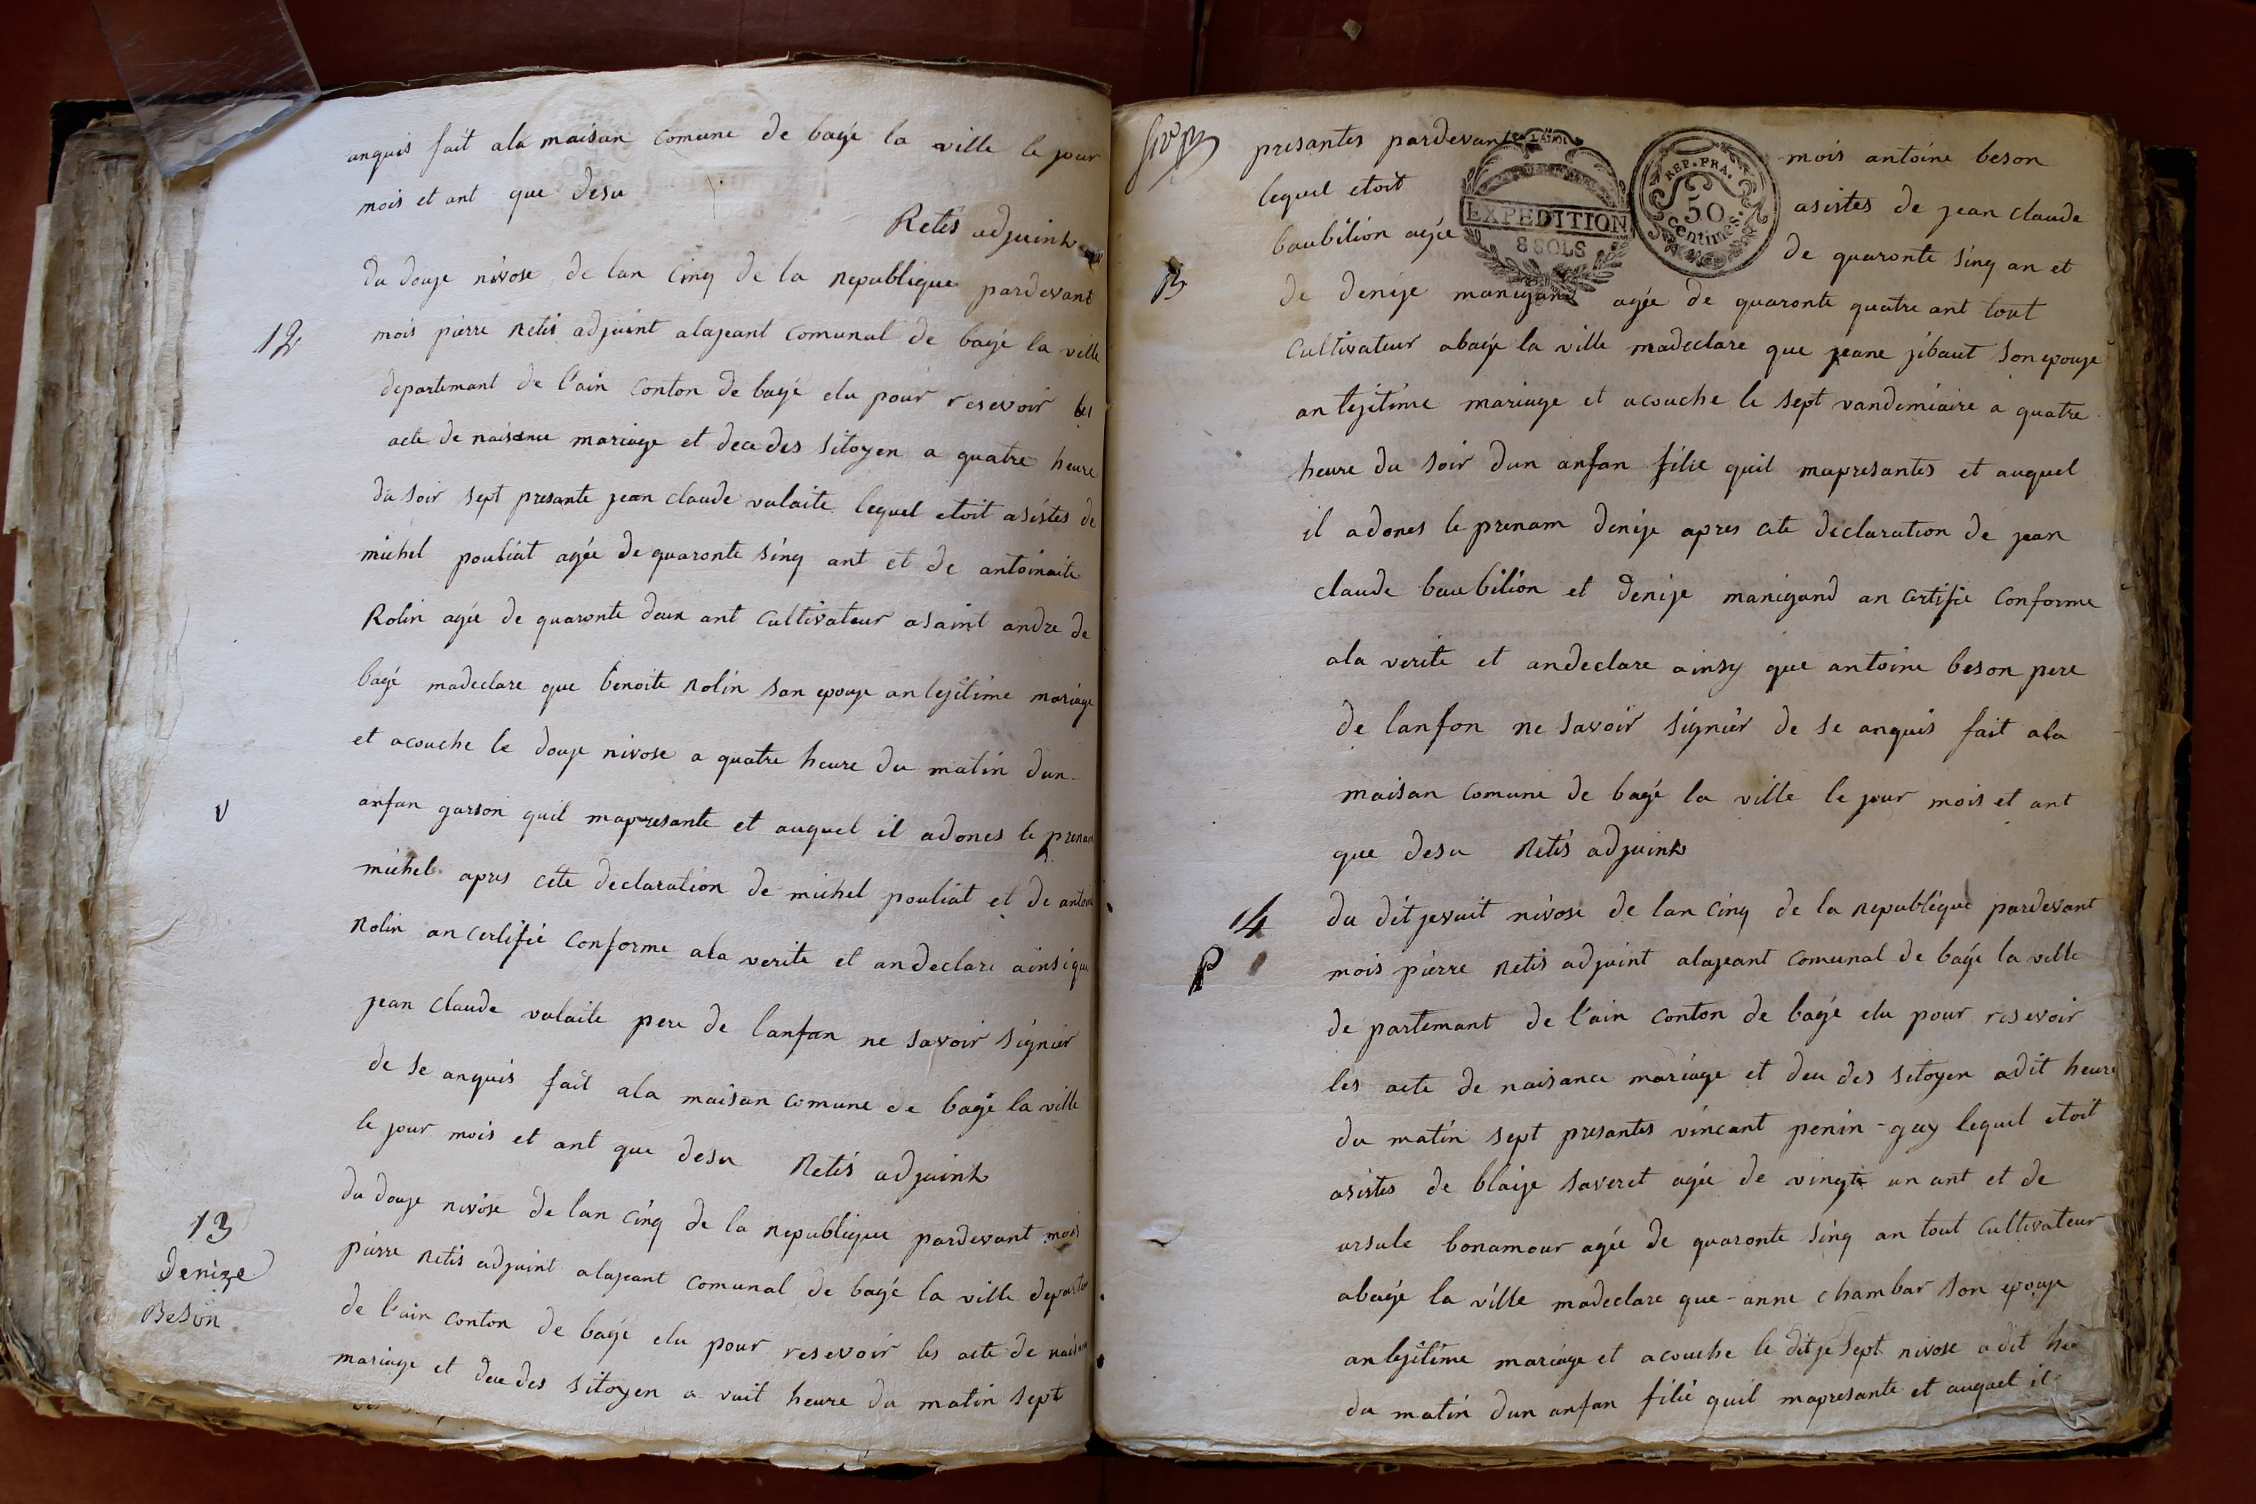 anquis fait ala maisan comune de bagé la ville le jour
mois et ant que desu
Retis adjuint
du douze nivose de lan cinq de la republique pardevant
12
mois pierre Retis adjuint alajeant comunal de bagé la ville
departemant de l'ain conton de bagé elu pour resevoir les
acte de naisance mariage et dece des sitoyen a quatre heure
du soir sept presante jean claude valaite lequel etoit asistes de
michel pouliat agée de quaronte sinq ant et de antoinaite
Rolin agée de quaronte deux ant cultivateur asaint andre de
bagé madeclare que benoite Rolin son epouze an lejitime mariage
et acouche le douze nivose a quatre heure du matin dun
V
anfan garson quil mapresante et auquel il adones le prenam
michel apres cete declaration de michel pouliat et de antoin
Rolin an certifié conforme ala verite et andeclare ainsi que
jean claude valaite pere de lanfan ne savoir signier
de se anquis fait ala maisan comune de bagé la ville
le jour mois et ant que desu Retis adjuint
13
denize
Beson
du douze nivose de lan cinq de la republique pardevant mois
pierre Retis adjuint alajeant comunal de bagé la ville departem
de l'ain conton de bagé elu pour resevoir les acte de naisan
mariage et dece des sitoyen a vuit heure du matin sept
presantes pardevant mois antoine beson
LA LOI
EXPEDITION
8 SOLS
REP. FRA.
50
Centimes.
lequel etoit asistes de jean claude
baubilion agée de quaronte sinq an et
B
de denize manigand agée de quaronte quatre ant tout
cultivateur abagé la ville madeclare que jeane jibaut son epouze
an lejitime mariage et acouche le sept vandemiaire a quatre
heure du soir dun anfan filie quil mapresantes et auquel
il adones le prenam denize apres cete declaration de jean
claude baubilion et denize manigand an certifié conforme
ala verite et andeclare ainsy que antoine beson pere
de lanfon ne savoir signier de se anquis fait ala
maisan comune de bagé la ville le jour mois et ant
que desu Retis adjuint
14
du ditjevuit nivose de lan cinq de la republique pardevant
P
mois pierre Retis adjuint alajeant comunal de bagé la ville
de partemant de l'ain conton de bagé elu pour resevoir
les acte de naisance mariage et dece des sitoyen adit heure
du matin sept presantes vincant penin-guy lequel etoit
asistes de blaize saveret agée de vingts un ant et de
ursule bonamour agée de quaronte sinq an tout cultivateur
abagé la ville madeclare que anne chambar son epouze
an lejitime mariage et acouche le ditje sept nivose adit heu
du matin dun anfan filié quil mapresante et auquel il